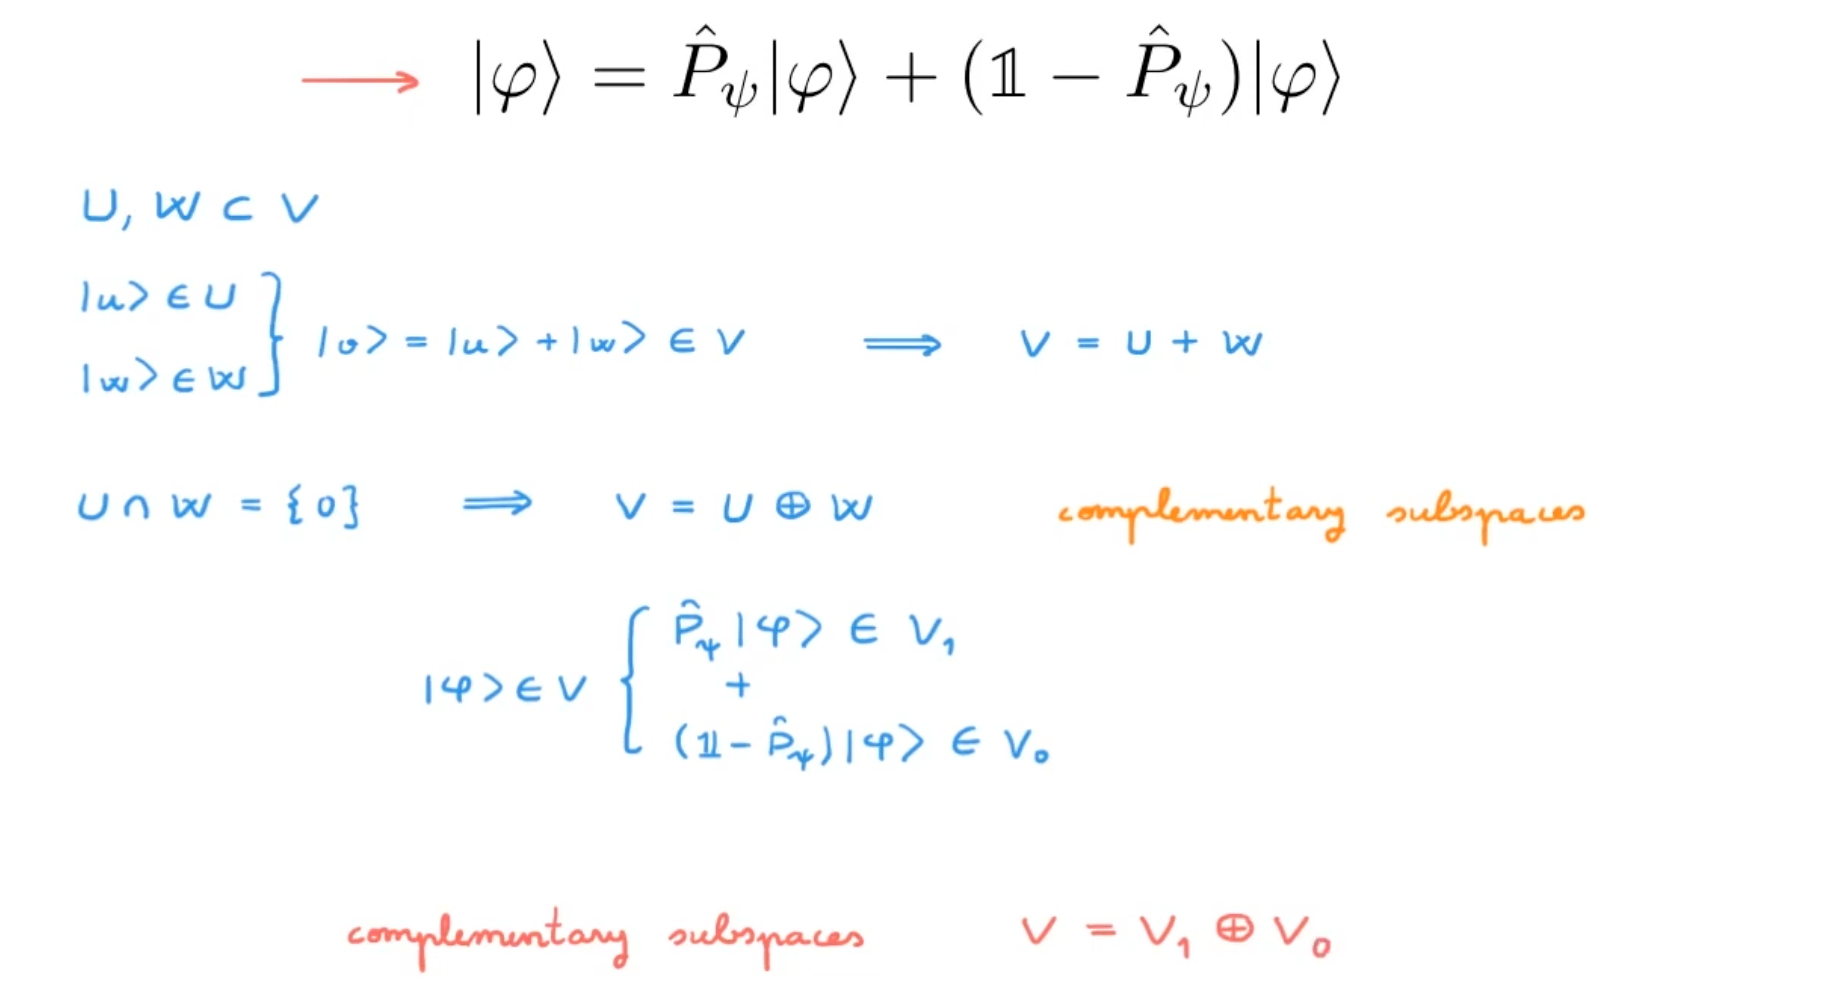 ⟶ |φ⟩ = P̂_ψ|φ⟩ + (𝟙 − P̂_ψ)|φ⟩
U, W ⊂ V
|u⟩ ∈ U
|w⟩ ∈ W } |v⟩ = |u⟩ + |w⟩ ∈ V ⟹ V = U + W
U ∩ W = {0} ⟹ V = U ⊕ W complementary subspaces
|φ⟩ ∈ V { P̂_ψ|φ⟩ ∈ V₁
+
(𝟙 − P̂_ψ)|φ⟩ ∈ V₀
complementary subspaces V = V₁ ⊕ V₀